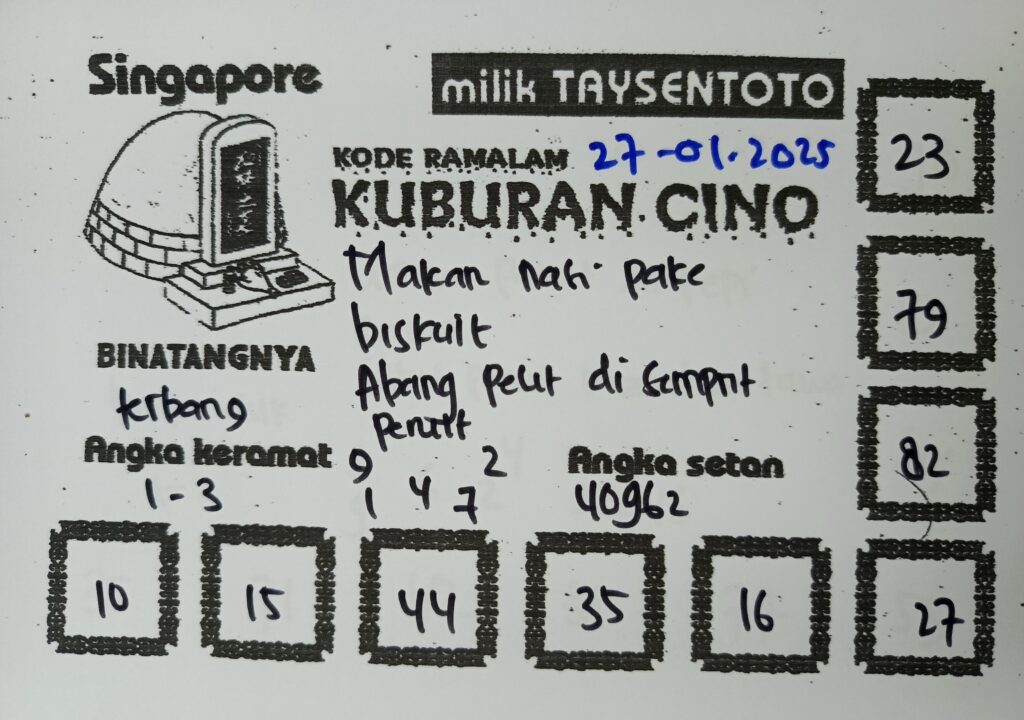 Singapore
milik TAYSENTOTO
KODE RAMALAM 27-01.2025
KUBURAN CINO
Makan nasi pake
biskuit
Abang pelit di semprit
BINATANGNYA
terbang
Angka keramat
1-3
9 2
1 4 7
Angka setan
40962
23
79
82
10 15 44 35 16 27